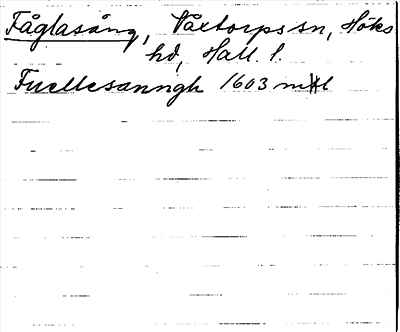 Fåglasång, Våxtorps sn, Höks
hd, Hall. l.
Fuellesanngh 1603 mtl